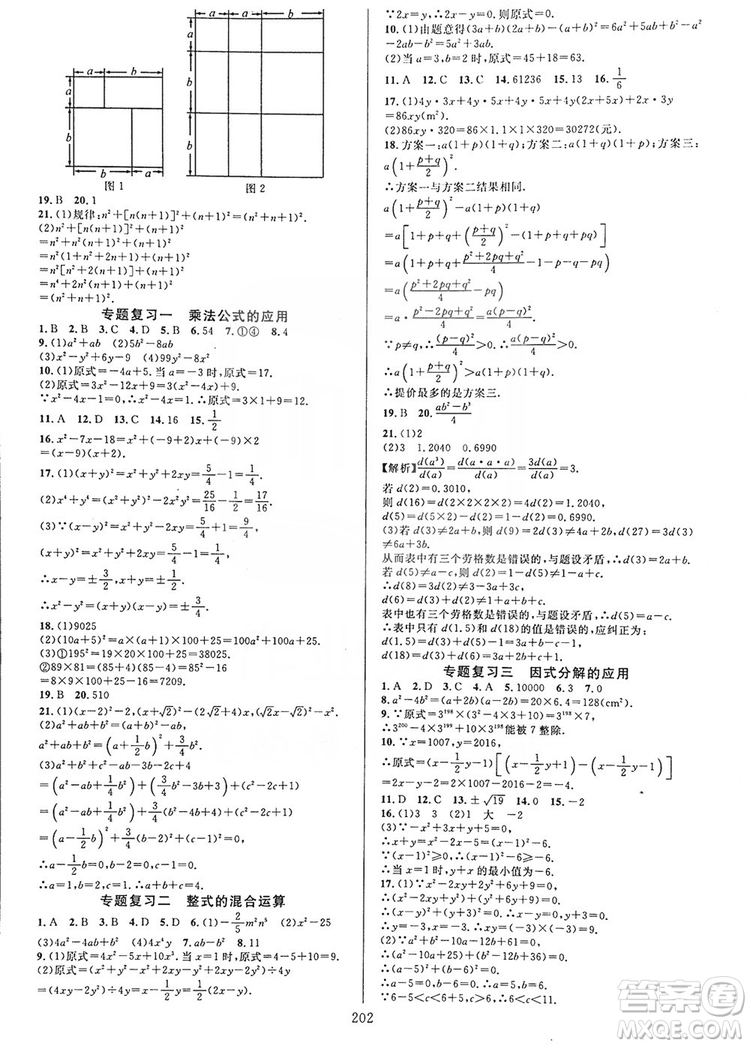 a b
a
b
b a
图1
a a b
a
b
b
图2
19.B 20.1
21.(1)规律:n²+[n(n+1)]²+(n+1)²=(n²+n+1)².
(2)n²+[n(n+1)]²+(n+1)²
=n²+n²(n+1)²+(n+1)²
=n²[1+(n+1)²]+(n+1)²
=n²[n²+2(n+1)]+(n+1)²
=n⁴+2n²(n+1)+(n+1)²
=(n²+n+1)².
专题复习一 乘法公式的应用
1.B 2.B 3.C 4.D 5.B 6.54 7.①④ 8.4
9.(1)a²+ab (2)5b²-8ab
(3)x²-y²+6y-9 (4)99x²-y²
10.(1)原式=-4a+5. 当a=-3时,原式=17.
(2)原式=3x²-12x+9=3(x²-4x+3).
∵x²-4x-1=0,∴x²-4x=1. ∴原式=3×1+9=12.
11.A 12.D 13.C 14.16 15.1/2
16.x²-7x-18=x²+(2-9)x+2×(-9)
=(x+2)(x-9).
17.(1)(x+y)²=x²+y²+2xy=5/4-1=1/4.
(2)x⁴+y⁴=(x²+y²)²-2x²y²=25/16-1/2=17/16.
(3)∵(x-y)²=x²+y²-2xy=5/4+1=9/4,
∴x-y=±3/2.
∴x²-y²=(x+y)(x-y)=±3/4.
18.(1)9025
(2)(10a+5)²=a(a+1)×100+25=100a²+100a+25.
(3)①195²=19×(19+1)×100+25=38025.
②89×81=(85+4)×(85-4)=85²-4²=8×(8+1)×100+25-16
=8×9×100+9=7209.
19.B 20.510
21.(1)(x-2)²-2x,(x+√2)²-(2√2+4)x,(√2x-√2)²-x²
(2)a²+ab+b²=(a+1/2b)²+3/4b².
(3)a²+b²+c²-ab-3b-2c+4
=(a²-ab+1/4b²)+(3/4b²-3b+3)+(c²-2c+1)
=(a²-ab+1/4b²)+3/4(b²-4b+4)+(c²-2c+1)
=(a-1/2b)²+3/4(b-2)²+(c-1)²=0,
∴a-1/2b=0,b-2=0,c-1=0. ∴a=1,b=2,c=1.
∴a+b+c=4.
专题复习二 整式的混合运算
1.A 2.B 3.A 4.D 5.D 6.(1)-2/5m²n⁵ (2)2x²-5xy
(3)4a²-4ab+b² (4)4x⁴y 7.ab-b² 8.11
9.(1)原式=4x²-5x+10x³. 当x=1时,原式=9.
(2)原式=(x²-y²-x²+2xy-y²+2xy-2y²)÷4y
=(4xy-4y²)÷4y=x-y.
∵2x=y,∴2x-y=0. 则原式=0.
10.(1)由题意得(3a+b)(2a+b)-(a+b)²=6a²+5ab+b²-a²
-2ab-b²=5a²+3ab.
(2)当a=3,b=2时,原式=45+18=63.
11.A 12.C 13.C 14.61236 15.13 16.1/6
17.(1)4y·3x+4y·5x+(4y+2y)·(4x+5x)=12xy+20xy+54xy
=86xy(m²).
(2)86xy·32=86×1.1×1.1×32≈30272(元).
18.方案一:a(1+p)(1+q) 方案二:a(1+q)(1+p) 方案三:
a(1+(p+q)/2)²
∴方案一与方案二结果相同.
a(1+(p+q)/2)²-a(1+p)(1+q)
=a[1+p+q+((p+q)/2)²]-a(1+p+q+pq)
=a(1+p+q+(p²+2pq+q²)/4-1-p-q-pq)
=a(p²+2pq+q²)/4-pq)
=a·(p²-2pq+q²)/4
=a(p-q)²/4.
∵p≠q,∴(p-q)²/4>0. ∴a(p-q)²/4>0. ∴a(1+(p+q)/2)²>a(1+p)(1+q).
∴提价最多的是方案三.
19.B 20.(ab²-b³)/4
21.(1)2
(2)3 1.2040 0.6990
【解析】d(a³)/d(a)=d(a·a·a)/d(a)=3d(a)/d(a)=3.
若d(2)=0.3010,
则d(16)=d(2×2×2×2)=4d(2)=1.2040,
d(5)=d(10)-d(2)=0.6990.
(3)若d(3)≠2a-b,则d(9)=2d(3)≠4a-2b,d(27)=3d(3)
≠6a+3b.
从而表中有三个劳格数是错误的,与题设矛盾,∴d(3)=2a-b.
若d(5)≠a-c,则d(2)=1-d(5)≠1-a+c.
∴d(8)=3d(2)≠3-3a+3c,
d(6)=d(3)+d(2)≠1+a-b+c.
表中也有三个劳格数是错误的,与题设矛盾,∴d(5)=a-c.
∴表中只有d(1.5)和d(18)的值是错误的,应纠正为:
d(1.5)=d(3)+d(5)-1=3a-b+c-1,
d(18)=d(2)+2d(3)=1+3a-2b+c.
专题复习三 因式分解的应用
1.A 2.D 3.C 4.D 5.10000 6.3 7.0
8.a²-4b²=(a+2b)(a-2b)=128(cm²).
9.∵原式=3¹⁹⁸×(3²-4×3+10)=3¹⁹⁸×7,
∴3²⁰⁰-4×3¹⁹⁹+10×3¹⁹⁸能被7整除.
10.∵x=1007,y=2016,
∴原式=(x-1/2y+x-1/2y)[(x-1/2y)-(x-1/2y)]
=2x-y=2×1007-2016=-2.
11.D 12.B 13.±√19 14.0 15.-2
16.(1)3 3 (2)1 大 -2
(3)∵-x²+3x+y+5=0,∴x+y=x²-2x-5.
∴x+y=x²-2x+1-6=(x-1)²-6.
∵(x-1)²≥0,∴(x-1)²-6≥-6.
∴当x=1时,y+x的最小值为-6.
17.(1)∵x²-2xy+2y²+6y+9=0,
∴(x²-2xy+y²)+(y²+6y+9)=0.
∴(x-y)²+(y+3)²=0. ∴x-y=0,y+3=0.
∴x=-3,y=-3. ∴xy=9.
(2)∵a²-10a+b²-12b+61=0,
∴(a²-10a+25)+(b²-12b+36)=0.
∴(a-5)²+(b-6)²=0. ∴a-5=0,b-6=0.
∴a=5,b=6.
∵6-5<c<6+5,c≥6,∴6≤c<11.
202
答案圈
MXQE.COM